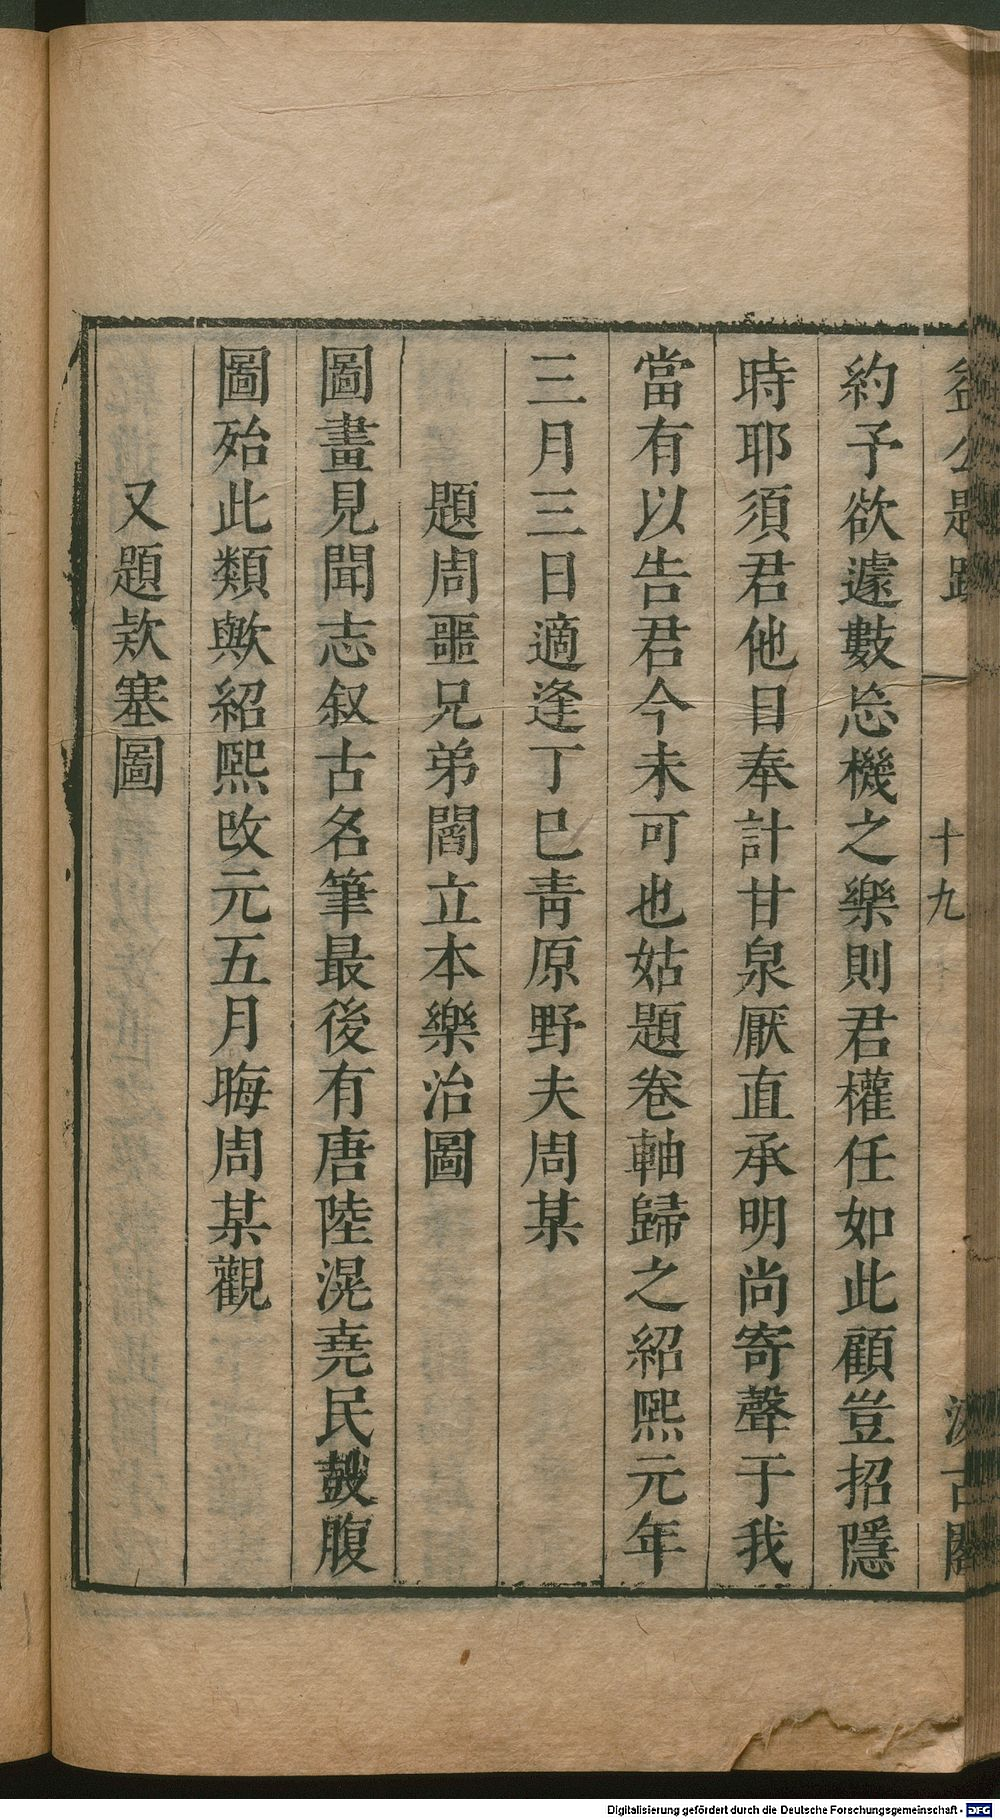 益公題跋 十九 汲古閣
約予欲遽數忘機之樂則君權任如此顧豈招隱
時耶須君他日奉計甘泉厭直承明尚寄聲于我
當有以告君今未可也姑題卷軸歸之紹熙元年
三月三日適逢丁巳靑原野夫周某
題周噩兄弟閻立本樂治圖
圖畫見聞志叙古名筆最後有唐陸滉堯民鼓腹
圖殆此類歟紹熙改元五月晦周某觀
又題欵塞圖
Digitalisierung gefördert durch die Deutsche Forschungsgemeinschaft - DFG